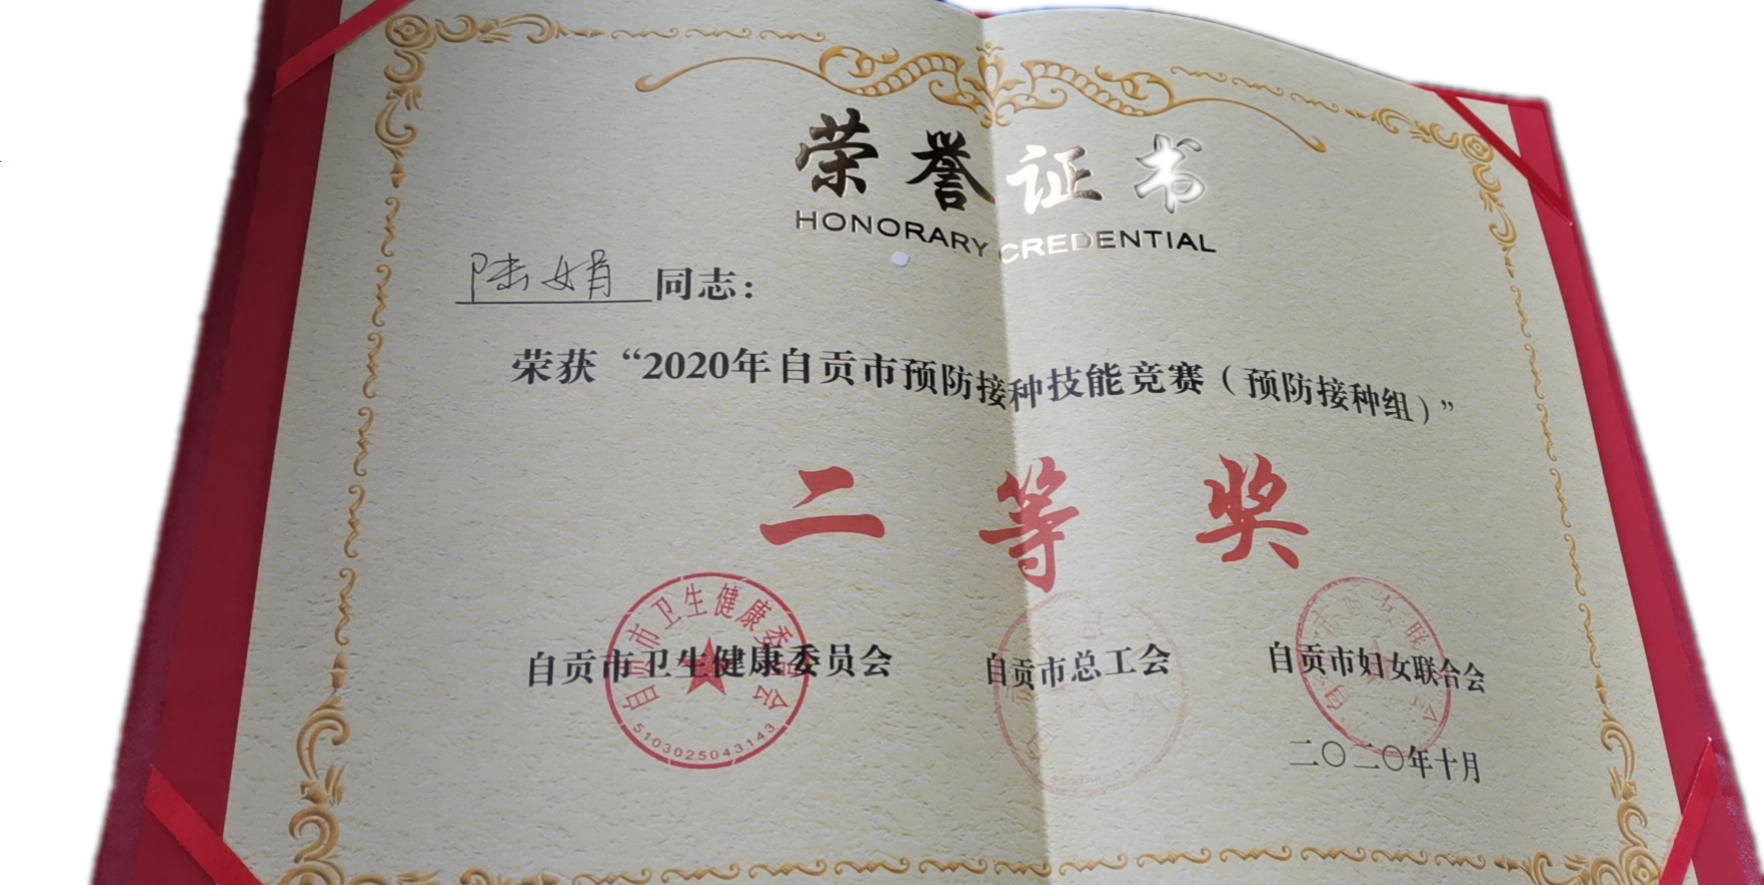 荣誉证书
HONORARY CREDENTIAL
陆娟 同志：
荣获“2020年自贡市预防接种技能竞赛（预防接种组）”
二等奖
自贡市卫生健康委员会 自贡市总工会 自贡市妇女联合会
自贡市卫生健康委员会
5103025043143
二〇二〇年十月